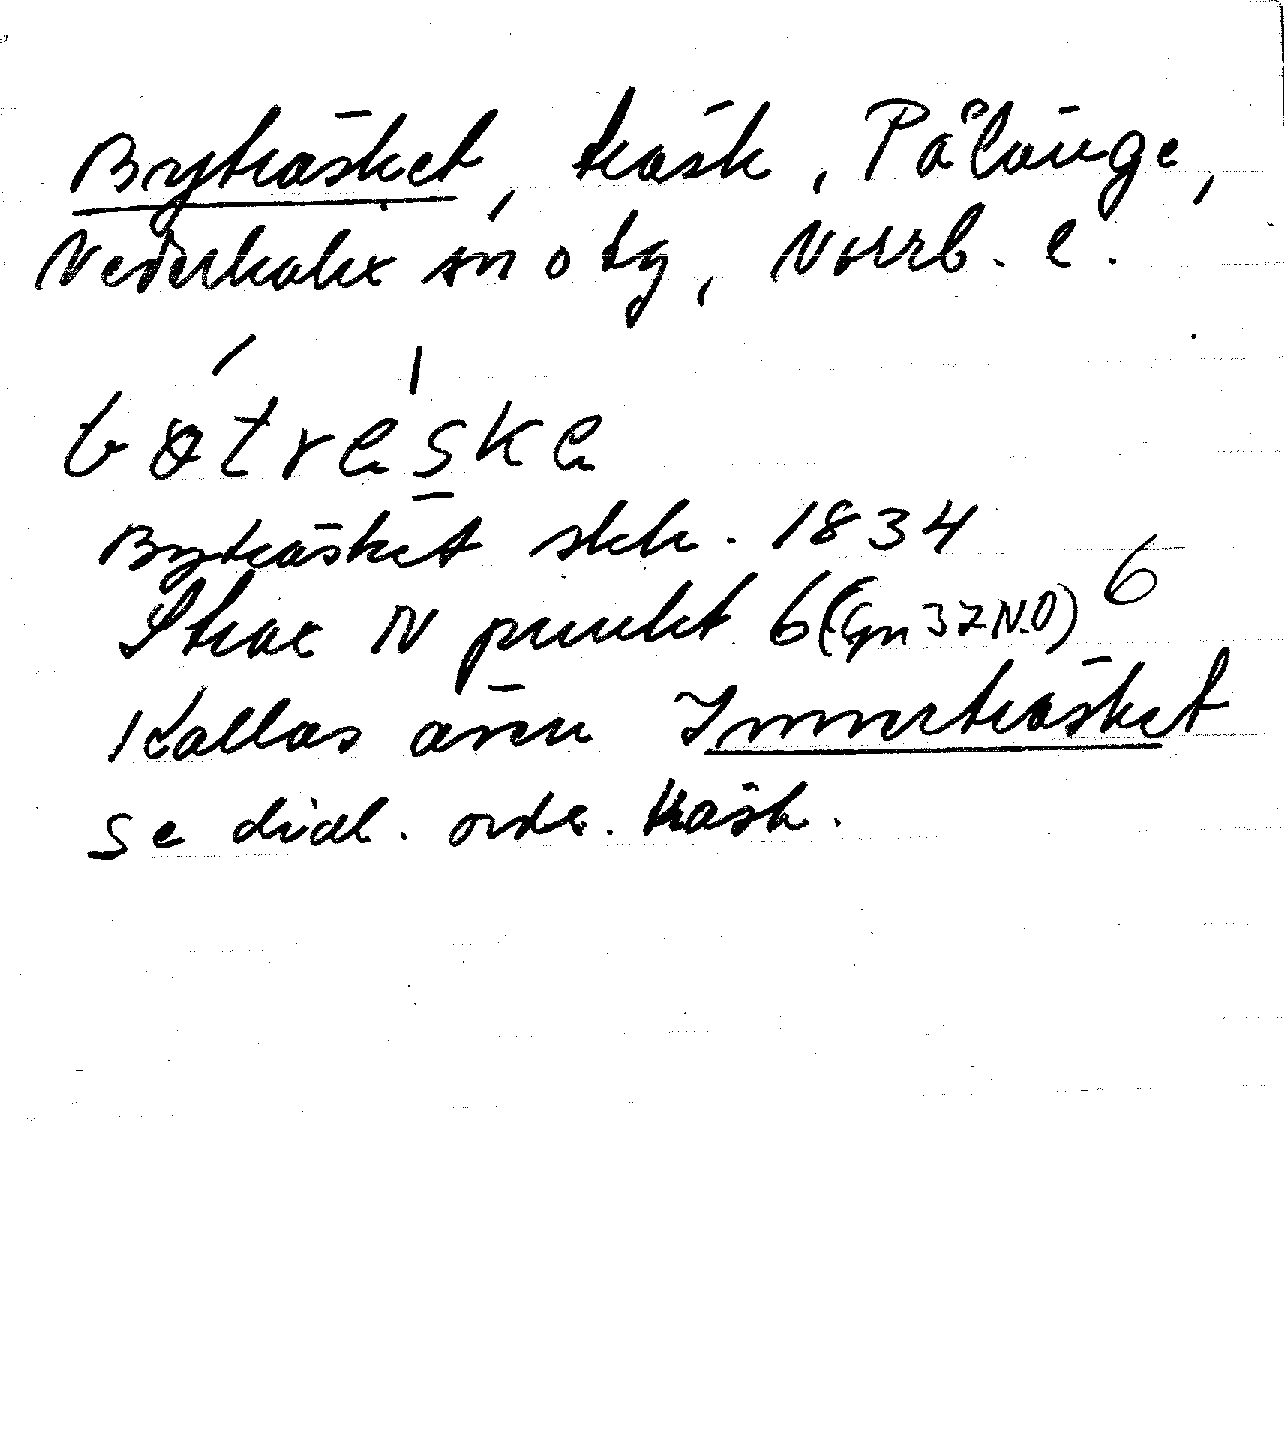 Byträsket, träsk, Pålänge,
Nederkalix sn o tg, Norrb. l.
Byträsket skk. 1834
Strax N punkt 6 (Gn 37 N.O) 6
Kallas även Innerträsket
Se dial. ordet träsk.